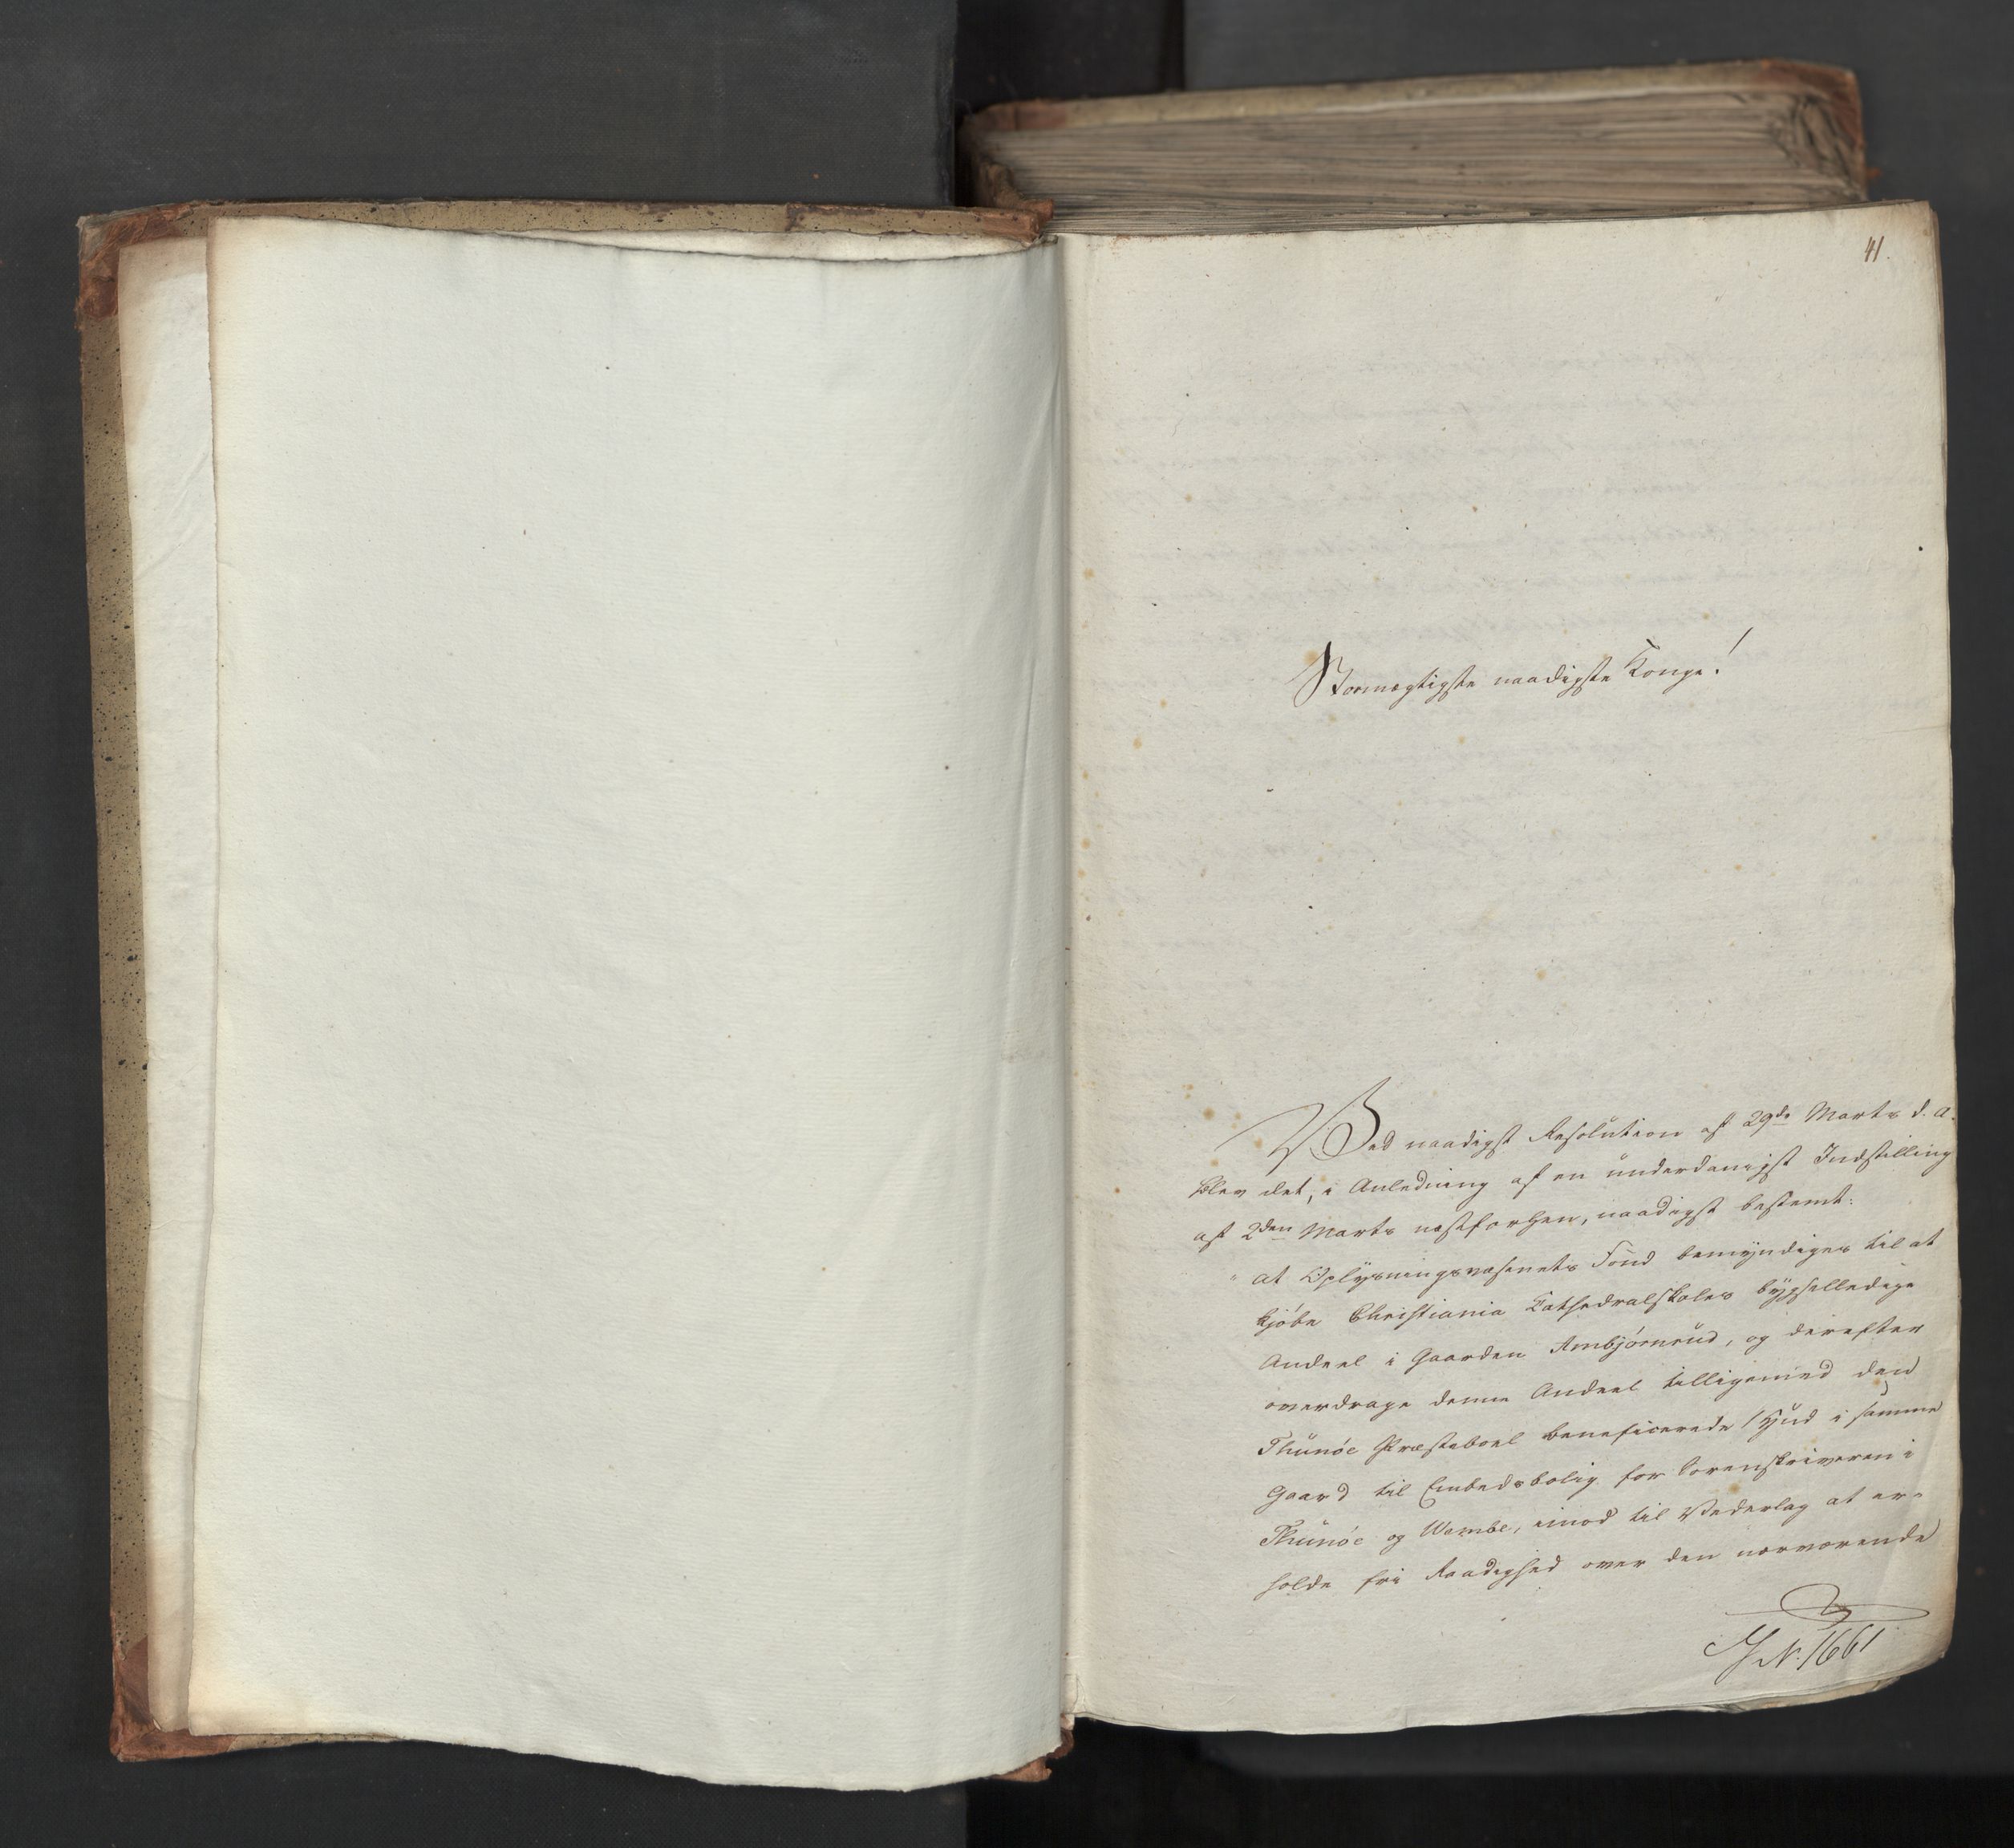 41.
Stormægtigste naadigste Konge!
Ved naadigst Resolution af 29de Marts d. A.
blev det, i Anledning af en underdanigst Indstilling
af 2den Marts næstforhen, naadigst bestemt:
" at Oplysningsvæsenets Fond bemyndiges til at
kjöbe Christiania Cathedralskoles bygselledige
Andeel i Gaarden Ambjörnrud, og derefter
overdrage denne Andeel tilligemed den
Thunöe Præsteboel beneficerede 1 Hud i samme
Gaard til Embedsbolig for Sorenskriveren i
Thunöe og Wembe, imod til Vederlag at er-
holde fri Raadighed over den nærværende
N. 1661